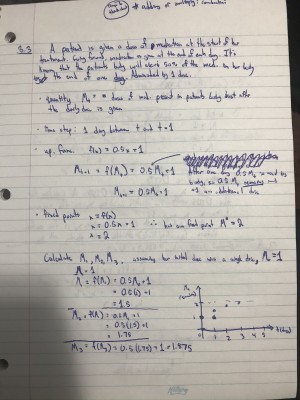 # adding or multiply: combination
3.3 A patient is given a dose of medication at the start of her
treatment. Going forward, medication is given at the end of each day. It's
known that the patients body used about 50% of the meds in her body
by the end of one day, followed by 1 dose.
• quantity Mt = dose of med. present in patients body just after
the daily dose is given
• Time step: 1 day between t and t+1
• up. func. f(x) = 0.5x + 1
Mt+1 = f(Mt) = 0.5Mt + 1
Mt+1 = 0.5Mt + 1
After one day 0.5Mt is used by
body, so 0.5Mt remains
+1 additional dose
• fixed points x = f(x)
x = 0.5x + 1 ∴ has one fixed point M* = 2
x = 2
Calculate M1, M2, M3, assuming her initial dose was a single dose, M0 = 1
M0 = 1
M1 = f(M0) = 0.5M0 + 1
= 0.5(1) + 1
= 1.5
M2 = f(M1) = 0.5M1 + 1
= 0.5(1.5) + 1
= 1.75
M3 = f(M2) = 0.5(1.75) + 1 = 1.875
Mt
2
1
0 1 2 3 4 5
t (days)